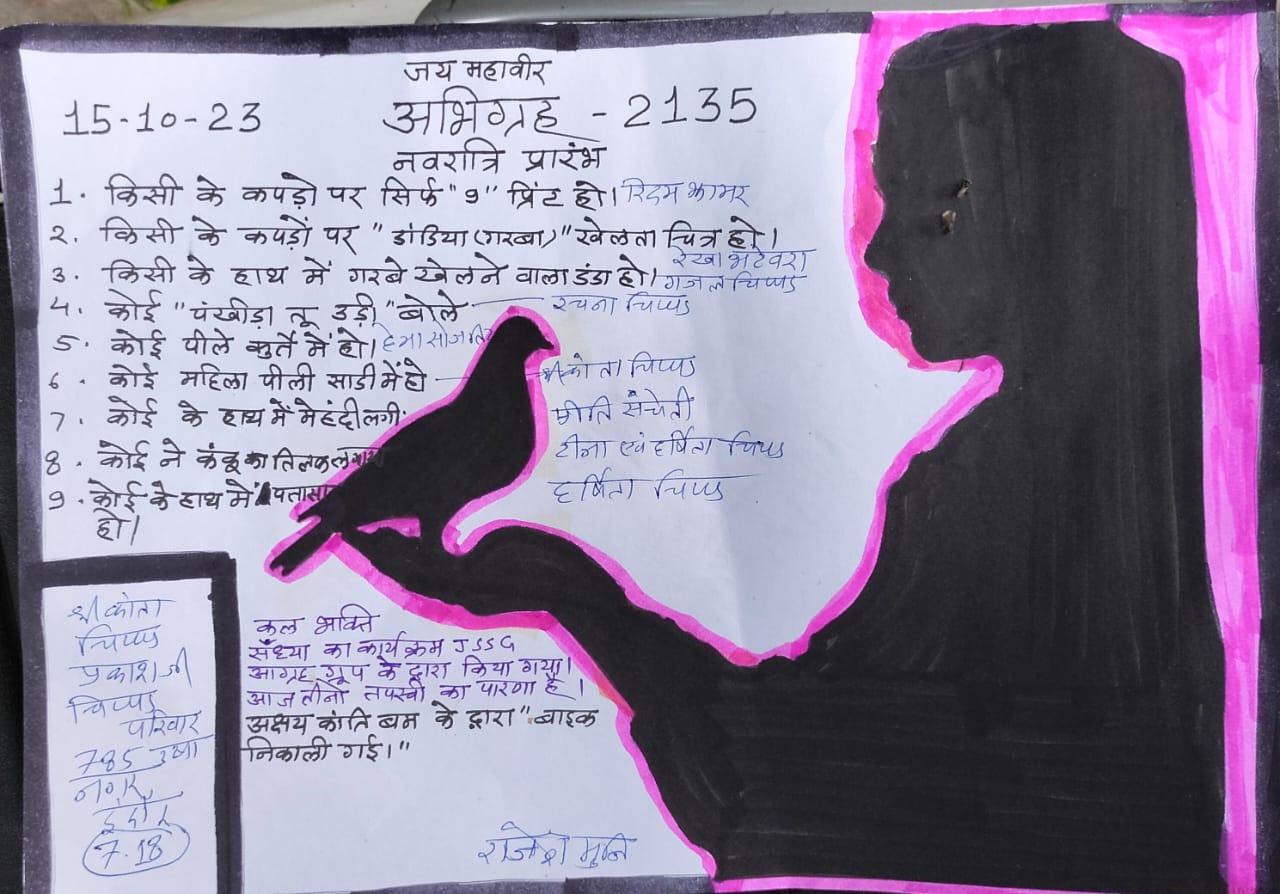 जय महावीर
15-10-23 अभिग्रह - 2135
नवरात्रि प्रारंभ
1. किसी के कपड़ो पर सिर्फ "9" प्रिंट हो। रिदम झामर
2. किसी के कपड़ों पर "डांडिया (गरबा)" खेलता चित्र हो।
रेखा भटेवरा
3. किसी के हाथ में गरबे खेलने वाला डंडा हो। गजल चिप्पड
4. कोई "पंखीड़ा तू उड़ी" बोले रचना चिप्पड
5. कोई पीले कुर्ते में हो। हेमा
6. कोई महिला पीली साडी में हो कांता चिप्पड
7. कोई के हाथ में मेहंदी लगी प्रीति संचेती
8. कोई ने कंकू का तिलक टीना एवं हर्षिता चिप्पड
9. कोई के हाथ में हर्षिता चिप्पड
हो।
श्री कांता
चिप्पड
प्रकाश जी
चिप्पड
परिवार
785 उषा
नगर
इंदौर
7.18
कल भक्ति
संध्या का कार्यक्रम JSSG
आग्रह ग्रूप के द्वारा किया गया।
आज तीनो तपस्वी का पारणा है।
अक्षय कांति बम के द्वारा "बाइक
निकाली गई।"
राजेश मुनि